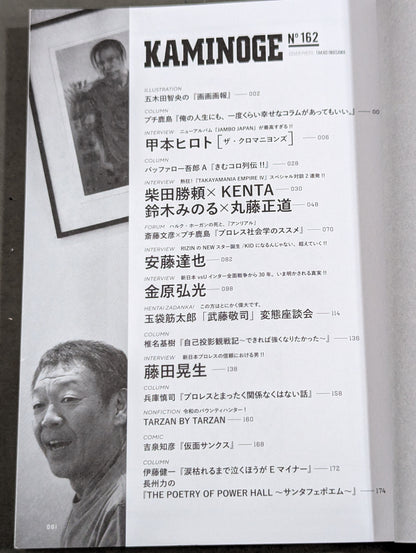 KAMINOGE Nº 162
ILLUSTRATION
五木田智央の『画画画報』 002
COLUMN
プチ鹿島『俺の人生にも、一度くらい幸せなコラムがあってもいい。』
INTERVIEW ニューアルバム『JAMBO JAPAN』が最高すぎる!!
甲本ヒロト[ザ・クロマニヨンズ] 006
COLUMN
バッファロー吾郎A『きむコロ列伝!!』 028
INTERVIEW 熱狂!『TAKAYAMANIA EMPIRE Ⅳ』スペシャル対談2連発!!
柴田勝頼×KENTA 030
鈴木みのる×丸藤正道 048
FORUM ハルク・ホーガンの死と、『アンリアル』
斎藤文彦×プチ鹿島『プロレス社会学のススメ』 070
INTERVIEW RIZINのNEWスター誕生/KIDになるんじゃない、超えていく!!
安藤達也 082
INTERVIEW 新日本vsUインター全面戦争から30年、いま明かされる真実!!
金原弘光 098
HENTAI ZADANKAI この方はとにかく偉大です。
玉袋筋太郎『武藤敬司』変態座談会 114
COLUMN
椎名基樹『自己投影観戦記〜できれば強くなりたかった〜』 136
INTERVIEW 新日本プロレスの信頼における男!!
藤田晃生 138
COLUMN
兵庫慎司『プロレスとまったく関係なくはない話』 158
NONFICTION 令和のバウンティハンター!
TARZAN BY TARZAN 160
COMIC
吉泉知彦『仮面サンクス』 168
COLUMN
伊藤健一『涙枯れるまで泣くほうがEマイナー』 172
長州力の
『THE POETRY OF POWER HALL 〜サンタフェポエム〜』 174
001